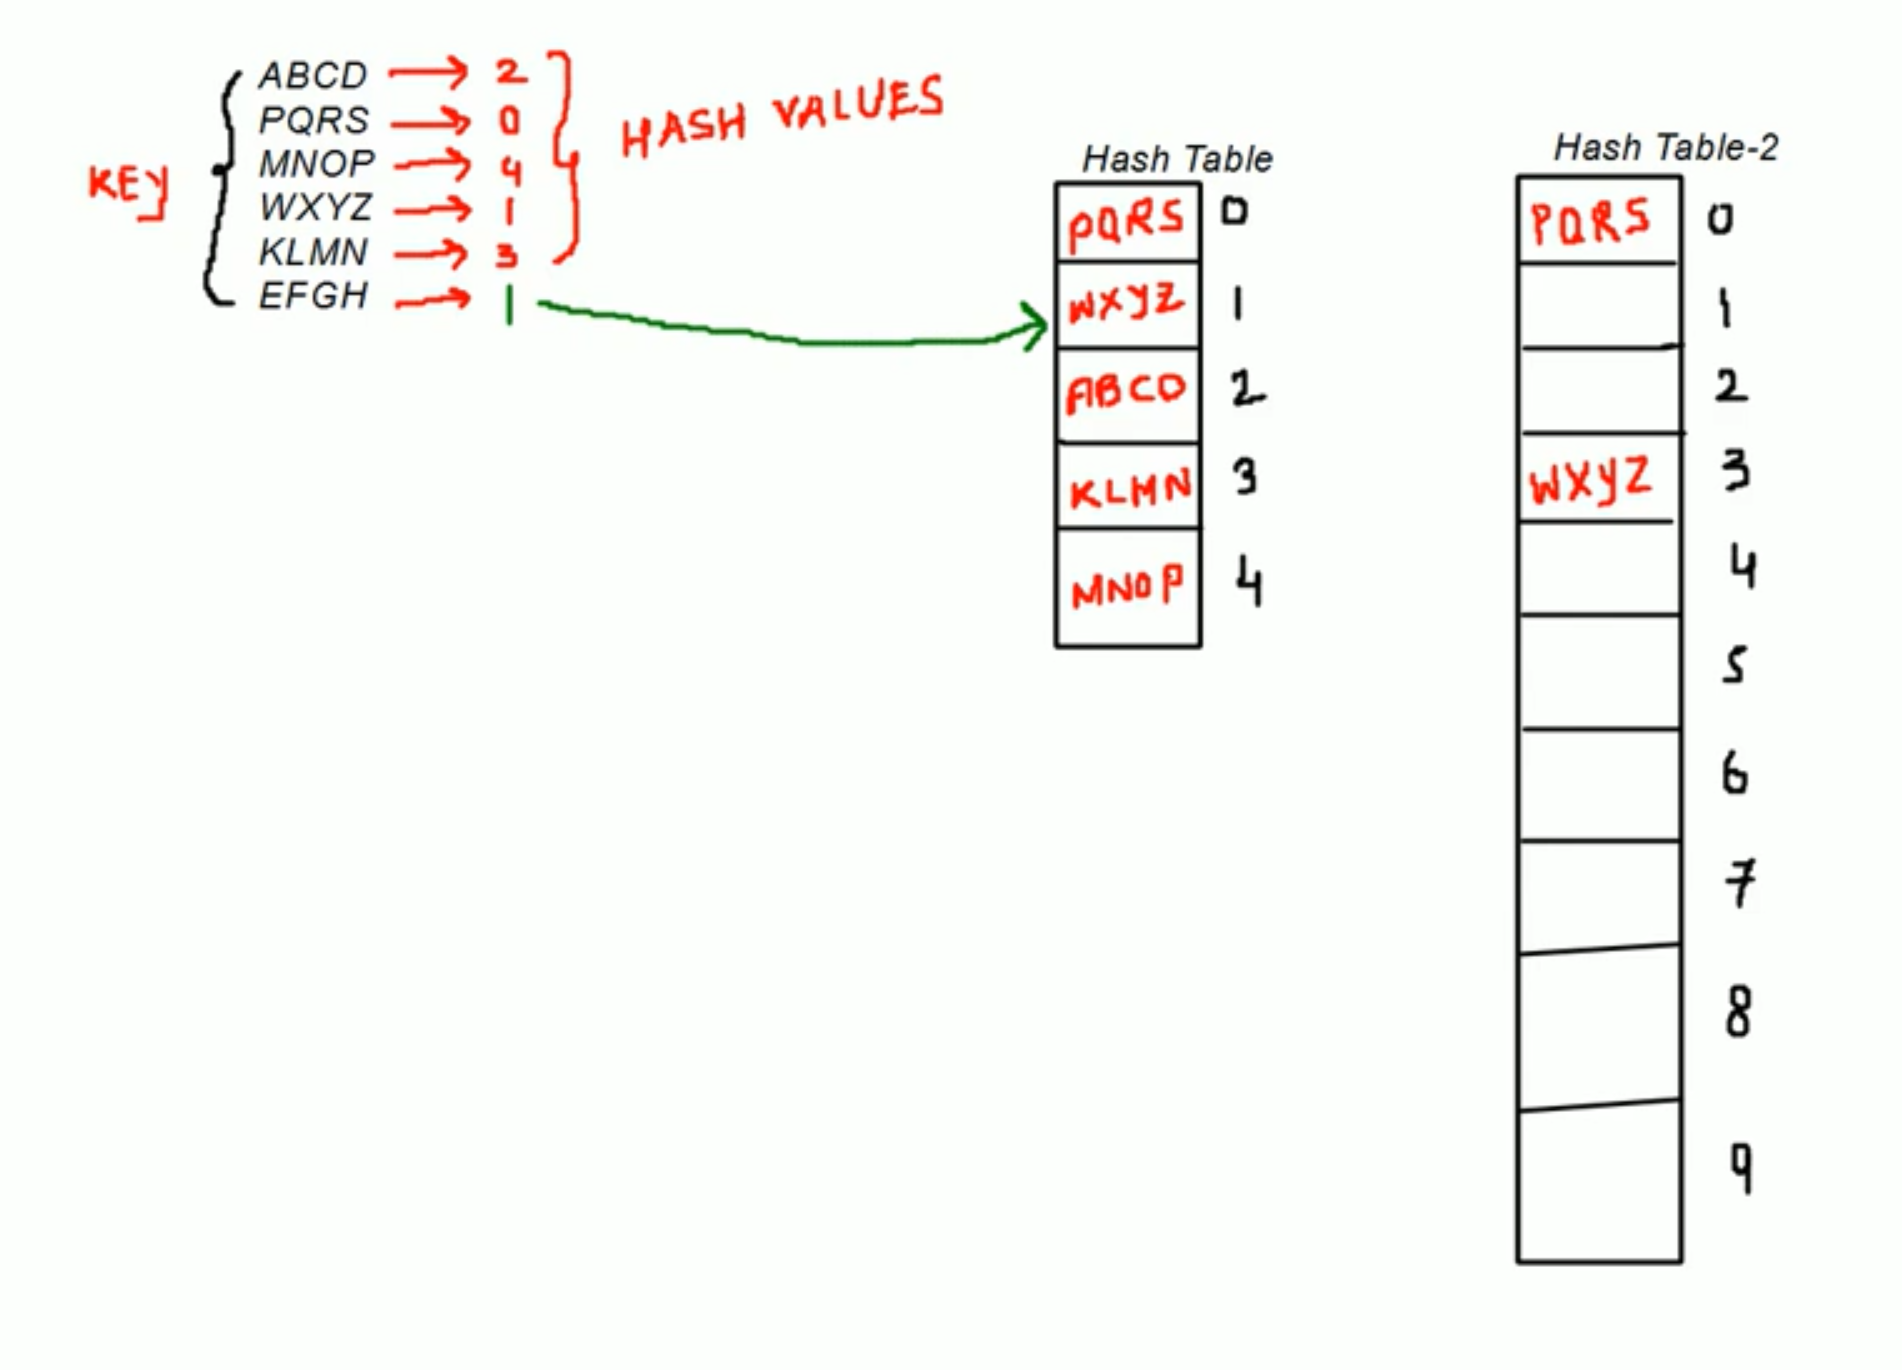 ABCD → 2
PQRS → 0
MNOP → 4
WXYZ → 1
KLMN → 3
EFGH → 1
KEY
HASH VALUES
Hash Table
PQRS 0
WXYZ 1
ABCD 2
KLMN 3
MNOP 4
Hash Table-2
PQRS 0
1
2
WXYZ 3
4
5
6
7
8
9